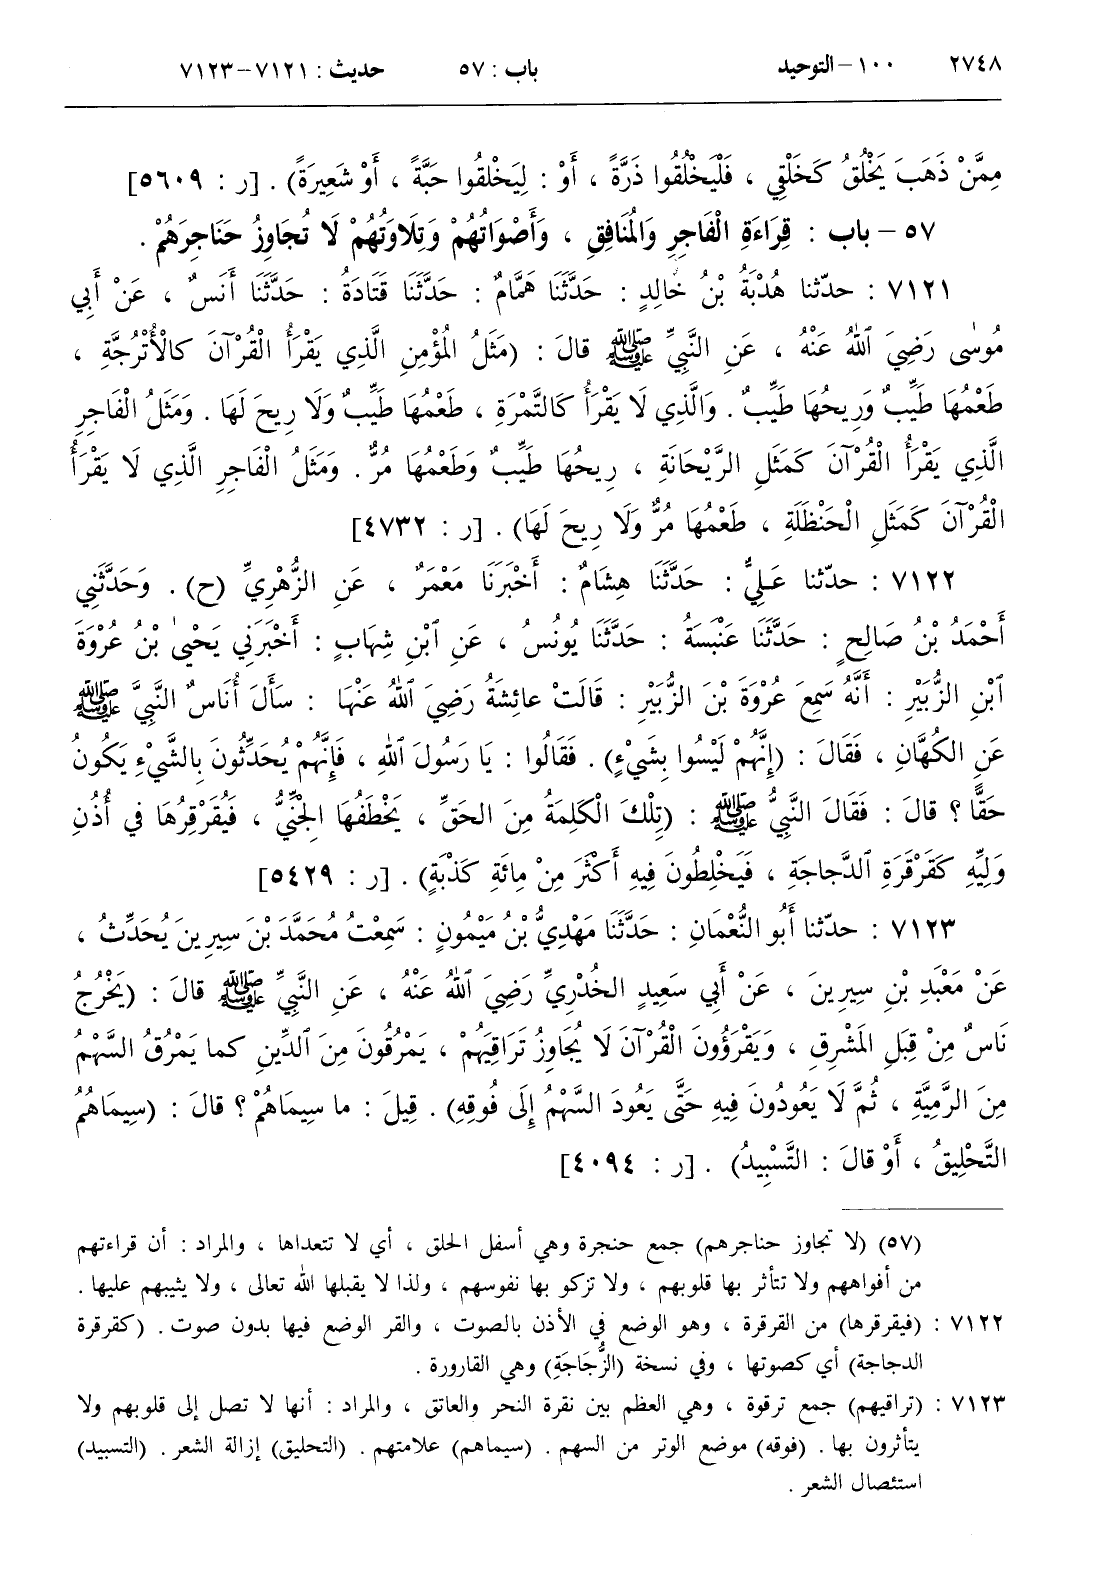 ٢٧٤٨ ١٠٠ – التوحيد باب : ٥٧ حديث : ٧١٢١ – ٧١٢٣
مِمَّنْ ذَهَبَ يَخْلُقُ كَخَلْقِي ، فَلْيَخْلُقُوا ذَرَّةً ، أَوْ : لِيَخْلُقُوا حَبَّةً ، أَوْ شَعِيرَةً) . [ر : ٥٦٠٩]
٥٧ – باب : قِرَاءَةِ الْفَاجِرِ وَالمُنَافِقِ ، وَأَصْوَاتُهُمْ وَتِلَاوَتُهُمْ لَا تُجَاوِزُ حَنَاجِرَهُمْ .
٧١٢١ : حدّثنا هُدْبَةُ بْنُ خَالِدٍ : حَدَّثَنَا هَمَّامٌ : حَدَّثَنَا قَتَادَةُ : حَدَّثَنَا أَنَسٌ ، عَنْ أَبِي
مُوسٰى رَضِيَ ٱللهُ عَنْهُ ، عَنِ النَّبِيِّ ﷺ قالَ : (مَثَلُ المُؤْمِنِ الَّذِي يَقْرَأُ الْقُرْآنَ كالْأُتْرُجَّةِ ،
طَعْمُهَا طَيِّبٌ وَرِيحُهَا طَيِّبٌ . وَالَّذِي لَا يَقْرَأُ كَالتَّمْرَةِ ، طَعْمُهَا طَيِّبٌ وَلَا رِيحَ لَهَا . وَمَثَلُ الْفَاجِرِ
الَّذِي يَقْرَأُ الْقُرْآنَ كَمَثَلِ الرَّيْحَانَةِ ، رِيحُهَا طَيِّبٌ وَطَعْمُهَا مُرٌّ . وَمَثَلُ الْفَاجِرِ الَّذِي لَا يَقْرَأُ
الْقُرْآنَ كَمَثَلِ الْحَنْظَلَةِ ، طَعْمُهَا مُرٌّ وَلَا رِيحَ لَهَا) . [ر : ٤٧٣٢]
٧١٢٢ : حدّثنا عَلِيٌّ : حَدَّثَنَا هِشَامٌ : أَخْبَرَنَا مَعْمَرٌ ، عَنِ الزُّهْرِيِّ (ح) . وَحَدَّثَنِي
أَحْمَدُ بْنُ صَالِحٍ : حَدَّثَنَا عَنْبَسَةُ : حَدَّثَنَا يُونُسُ ، عَنِ ٱبْنِ شِهَابٍ : أَخْبَرَنِي يَحْيىٰ بْنُ عُرْوَةَ
ٱبْنِ الزُّبَيْرِ : أَنَّهُ سَمِعَ عُرْوَةَ بْنَ الزُّبَيْرِ : قَالَتْ عائِشَةُ رَضِيَ ٱللهُ عَنْهَا : سَأَلَ أُنَاسٌ النَّبِيَّ ﷺ
عَنِ الْكُهَّانِ ، فَقَالَ : (إِنَّهُمْ لَيْسُوا بِشَيْءٍ) . فَقَالُوا : يَا رَسُولَ ٱللهِ ، فَإِنَّهُمْ يُحَدِّثُونَ بِالشَّيْءِ يَكُونُ
حَقًّا ؟ قالَ : فَقَالَ النَّبِيُّ ﷺ : (تِلْكَ الْكَلِمَةُ مِنَ الحَقِّ ، يَخْطَفُهَا الْجِنِّيُّ ، فَيُقَرْقِرُهَا في أُذُنِ
وَلِيِّهِ كَقَرْقَرَةِ ٱلدَّجاجَةِ ، فَيَخْلِطُونَ فِيهِ أَكْثَرَ مِنْ مِائَةِ كَذْبَةٍ) . [ر : ٥٤٢٩]
٧١٢٣ : حدّثنا أَبُو النُّعْمَانِ : حَدَّثَنَا مَهْدِيُّ بْنُ مَيْمُونٍ : سَمِعْتُ مُحَمَّدَ بْنَ سِيرِينَ يُحَدِّثُ ،
عَنْ مَعْبَدِ بْنِ سِيرِينَ ، عَنْ أَبِي سَعِيدٍ الخُدْرِيِّ رَضِيَ ٱللهُ عَنْهُ ، عَنِ النَّبِيِّ ﷺ قالَ : (يَخْرُجُ
نَاسٌ مِنْ قِبَلِ المَشْرِقِ ، وَيَقْرَؤُونَ الْقُرْآنَ لَا يُجَاوِزُ تَرَاقِيَهُمْ ، يَمْرُقُونَ مِنَ ٱلدِّينِ كما يَمْرُقُ السَّهْمُ
مِنَ الرَّمِيَّةِ ، ثُمَّ لَا يَعُودُونَ فِيهِ حَتَّى يَعُودَ السَّهْمُ إِلَى فُوقِهِ) . قِيلَ : ما سِيمَاهُمْ ؟ قالَ : (سِيمَاهُمُ
التَّحْلِيقُ ، أَوْ قالَ : التَّسْبِيدُ) . [ر : ٤٠٩٤]
(٥٧) (لا تجاوز حناجرهم) جمع حنجرة وهي أسفل الحلق ، أي لا تتعداها ، والمراد : أن قراءتهم
من أفواههم ولا تتأثر بها قلوبهم ، ولا تزكو بها نفوسهم ، ولذا لا يقبلها الله تعالى ، ولا يثيبهم عليها .
٧١٢٢ : (فيقرقرها) من القرقرة ، وهو الوضع في الأذن بالصوت ، والقر الوضع فيها بدون صوت . (كقرقرة
الدجاجة) أي كصوتها ، وفي نسخة (الزُّجَاجَةِ) وهي القارورة .
٧١٢٣ : (تراقيهم) جمع ترقوة ، وهي العظم بين نقرة النحر والعاتق ، والمراد : أنها لا تصل إلى قلوبهم ولا
يتأثرون بها . (فوقه) موضع الوتر من السهم . (سيماهم) علامتهم . (التحليق) إزالة الشعر . (التسبيد)
استئصال الشعر .